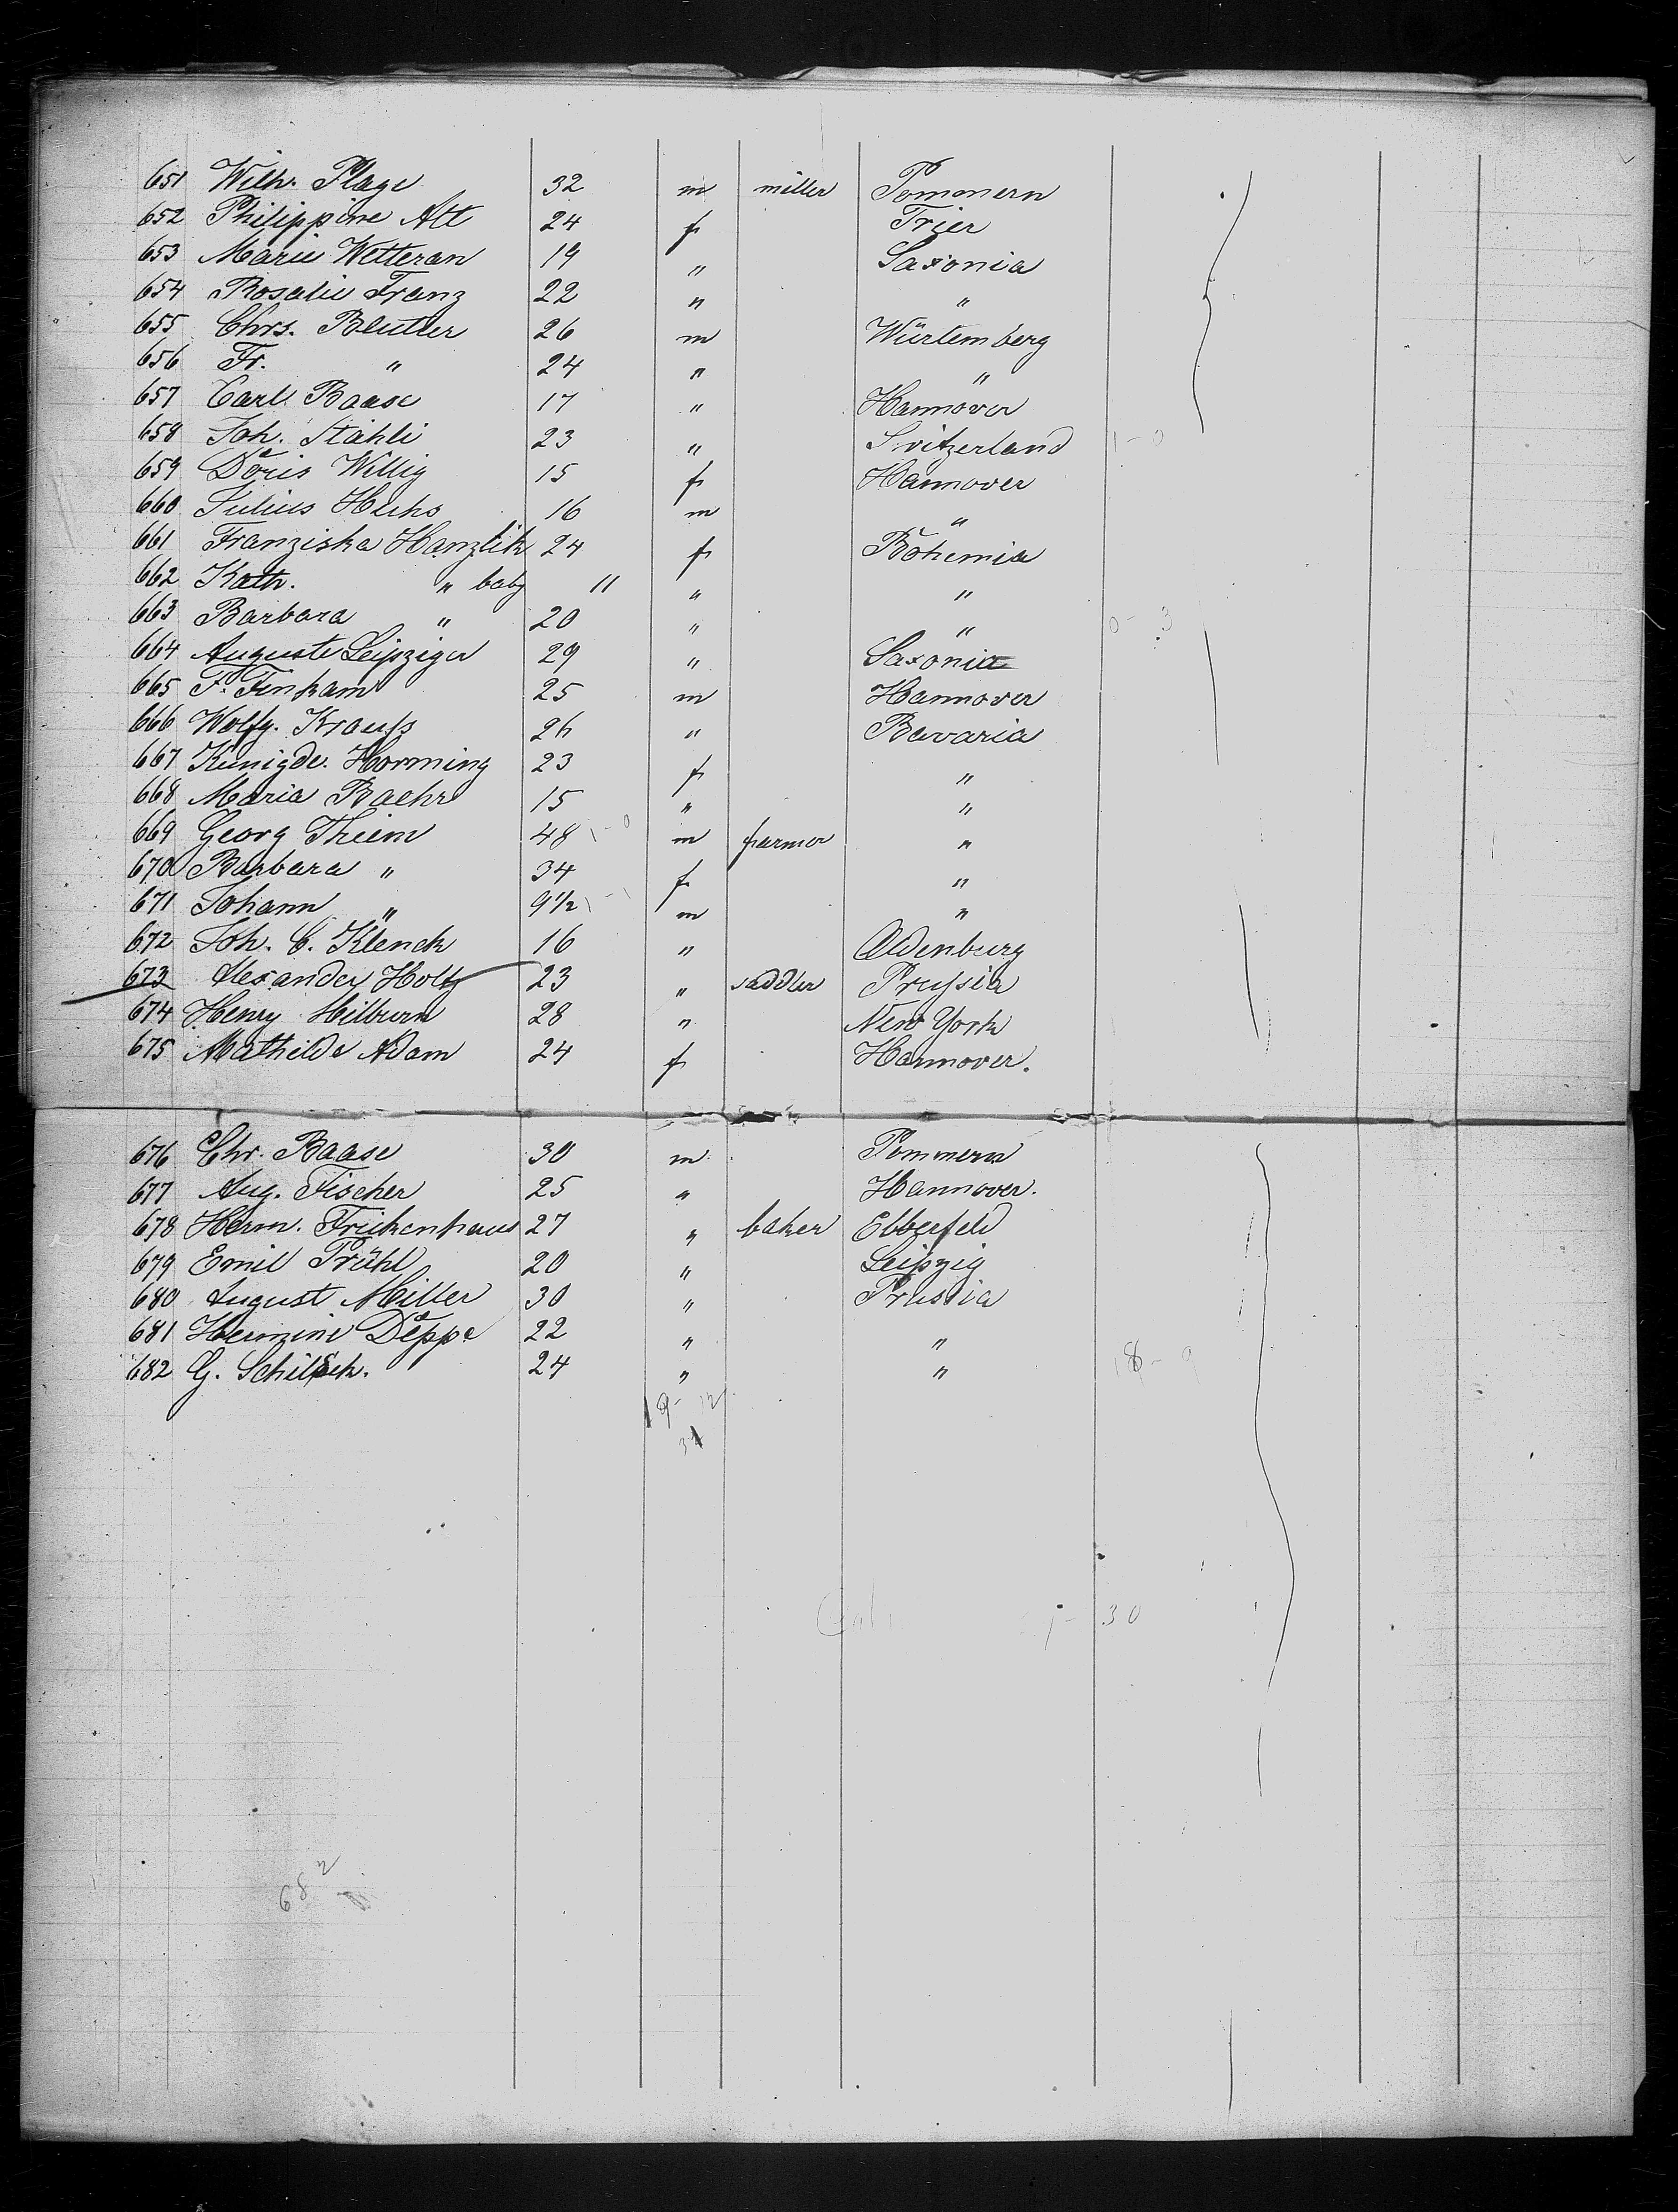 651 Wilh. Plage 32 m miller Pommern
652 Philippine Alt 24 f Trier
653 Marie Wetteran 19 " Saxonia
654 Rosalie Franz 22 " "
655 Chrs. Beutler 26 m Würtemberg
656 Fr. " 24 " "
657 Carl Baase 17 " Hannover
658 Joh. Stähli 23 " Switzerland 1-0
659 Doris Willig 15 f Hannover
660 Julius Huhs 16 m "
661 Franziska Hanzlik 24 f Bohemia
662 Kath. " baby " " "
663 Barbara " 20 " " 0-3
664 Auguste Leipziger 29 " Saxonia
665 F. Finkam 25 m Hannover
666 Wolfg. Krauſs 26 " Bavaria
667 Kunigde. Horming 23 f "
668 Maria Baehr 15 " "
669 Georg Thiem 48 1-0 m farmer "
670 Barbara " 34 f "
671 Johann " 9 1/2 1-1 m "
672 Joh. C. Klenck 16 " Oldenburg
673 Alexander Holtz 23 " saddler Pruſsia
674 Henry Hilburn 28 " New York
675 Mathilde Adam 24 f Hannover.
676 Chr. Baase 30 m Pommern
677 Aug. Fischer 25 " Hannover.
678 Herm. Frickenhaus 27 " baker Elberfeld
679 Emil Prühl 20 " Leipzig
680 August Miller 30 " Prussia
681 Hermine Deppe 22 " "
682 G. 24 " " 18-9
19-12
31
30
682